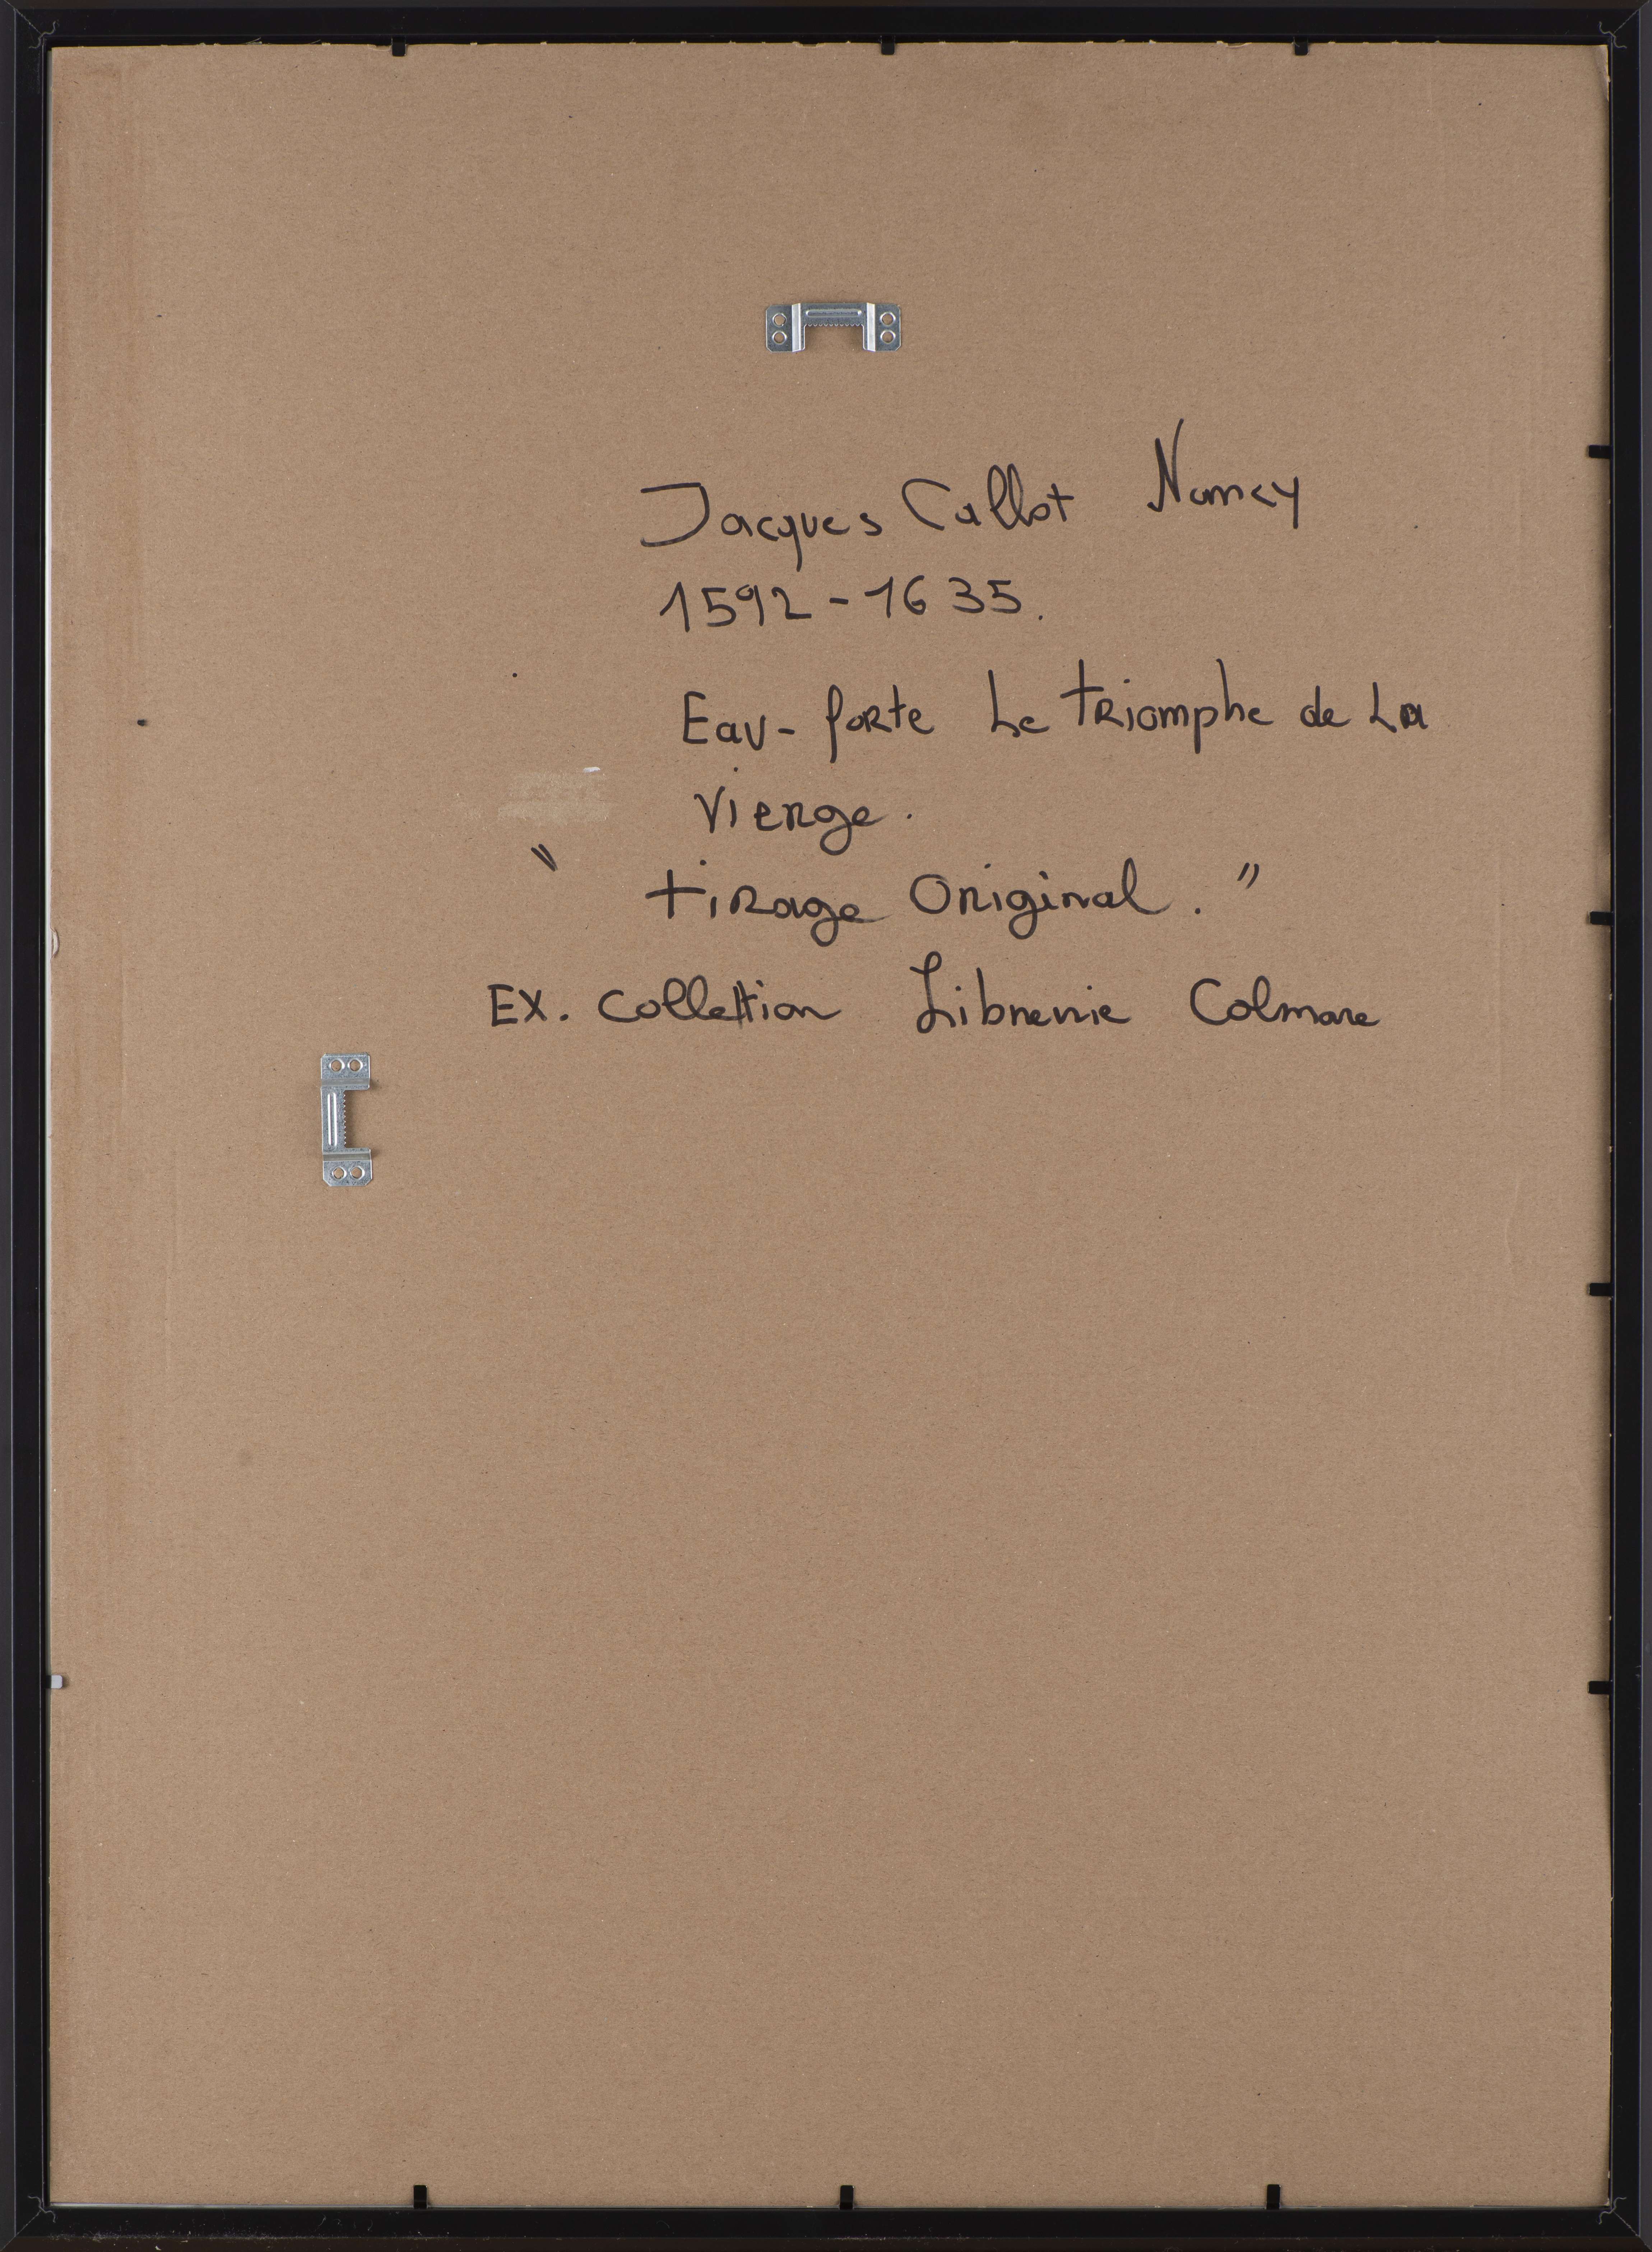 Jacques Callot Nancy
1592-1635.
Eau-forte Le triomphe de La
Vierge.
" tirage Original. "
EX. Collection Librerie Colmare